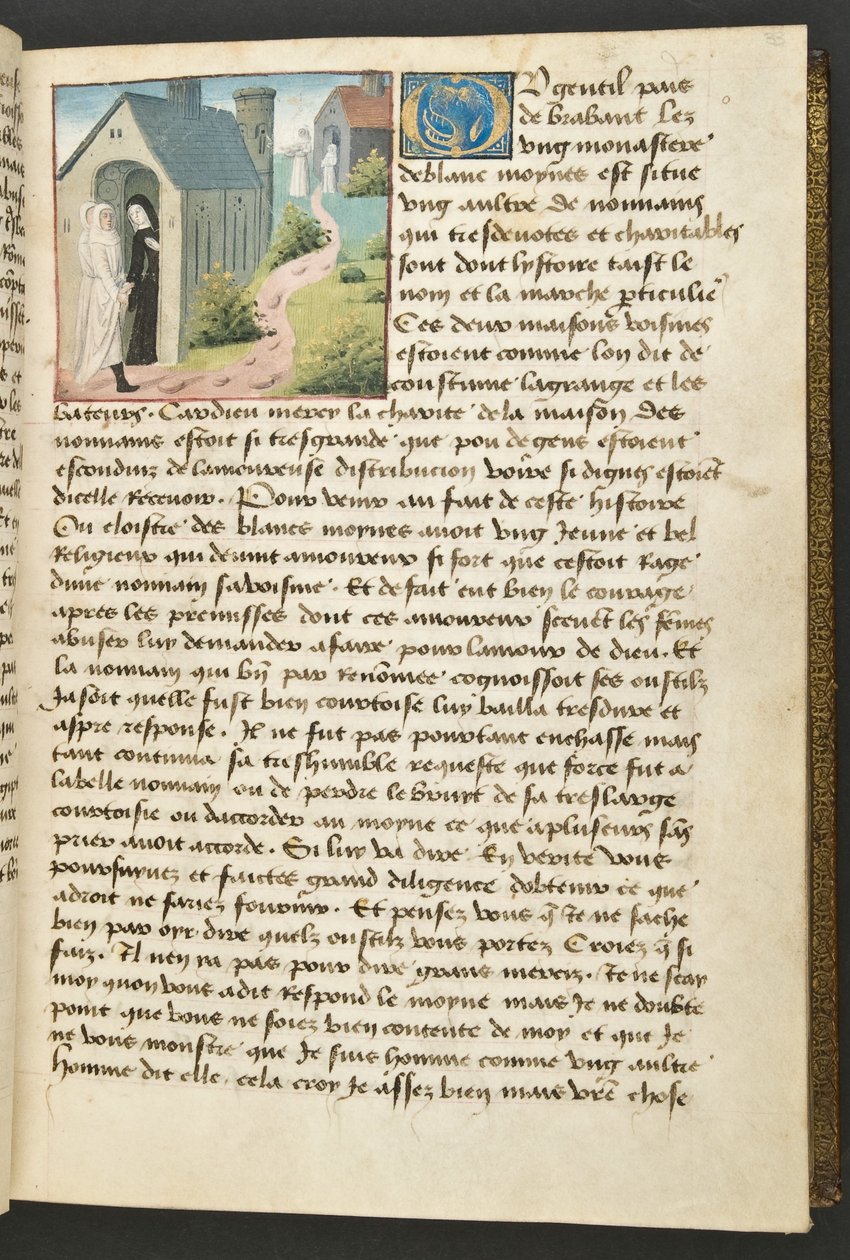 OU gentil pais
de brabant lez
vng monastere
de blanc moynes est situe
vng aultre de nonnains
qui tresdeuotes et charitables
sont dont lystoire taist le
nom et la marche pticulie
Ces deux maisons voisines
estoient comme lon dit de
coustume la grange et les
bateurs. Car dieu mercy la charite de la maison des
nonnains estoit si tresgrande que pou de gens estoient
escondiuz de lamoureuse distribucion voire si dignes estoiet
dicelle receuoir. Pour venir au fait de ceste histoire
Ou cloistre des blancs moynes auoit vng Jeune et bel
Religieux qui deuint amoureux si fort que cestoit rage
dune nonnain sa voisine. Et de fait eut bien le courage
apres les premisses dont ces amoureux sceuet les femes
abuser luy demander a faire pour lamour de dieu. Et
la nonnain qui bn par renomee cognoissoit ses oustilz
Jasoit quelle fust bien courtoise luy bailla tresdure et
aspre response. Il ne fut pas pourtant enchasse mais
tant continua sa treshumble requeste que force fut a
la belle nonnain ou de perdre le bruyt de sa treslarge
courtoisie ou daccorder au moyne ce que a pluseurs sas
prier auoit accorde. Si luy va dire En verite vous
poursuyuez et faictes grand diligence dobtenir ce que
a droit ne sariez fournir. Et pensez vous q Je ne sache
bien par oyr dire quelz oustilz vous portez Croiez q si
faiz. Il ney ra pas pour dire grans merciz. Je ne scay
moy quon vous a dit Respond le moyne mais Je ne doubte
point que vous ne soiez bien contente de moy et que Je
ne vous monstre que Je suis homme comme vng aultre
homme dit elle. cela croy Je assez bien mais vre chose